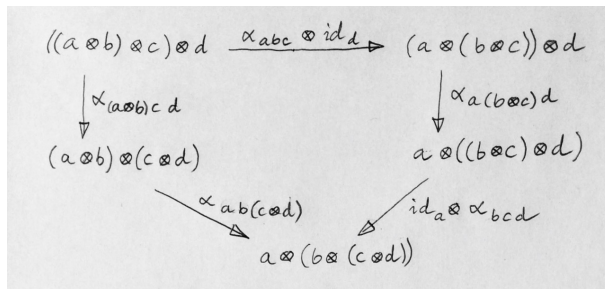 ((a ⊗ b) ⊗ c) ⊗ d α_{abc} ⊗ id_d (a ⊗ (b ⊗ c)) ⊗ d
α_{(a⊗b)c d} α_{a(b⊗c)d}
(a ⊗ b) ⊗ (c ⊗ d) a ⊗ ((b ⊗ c) ⊗ d)
α_{a b(c⊗d)} id_a ⊗ α_{bcd}
a ⊗ (b ⊗ (c ⊗ d))